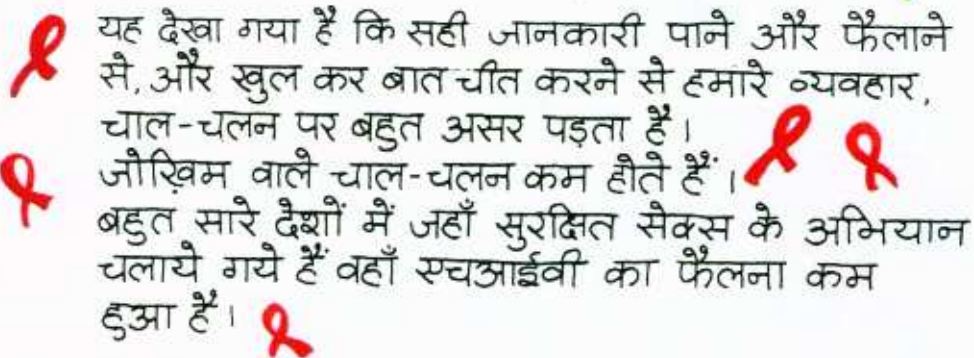 यह देखा गया है कि सही जानकारी पाने और फैलाने
से, और खुल कर बात चीत करने से हमारे व्यवहार,
चाल-चलन पर बहुत असर पड़ता है।
जोखिम वाले चाल-चलन कम होते हैं।
बहुत सारे देशों में जहाँ सुरक्षित सेक्स के अभियान
चलाये गये हैं वहाँ एचआईवी का फैलना कम
हुआ है।